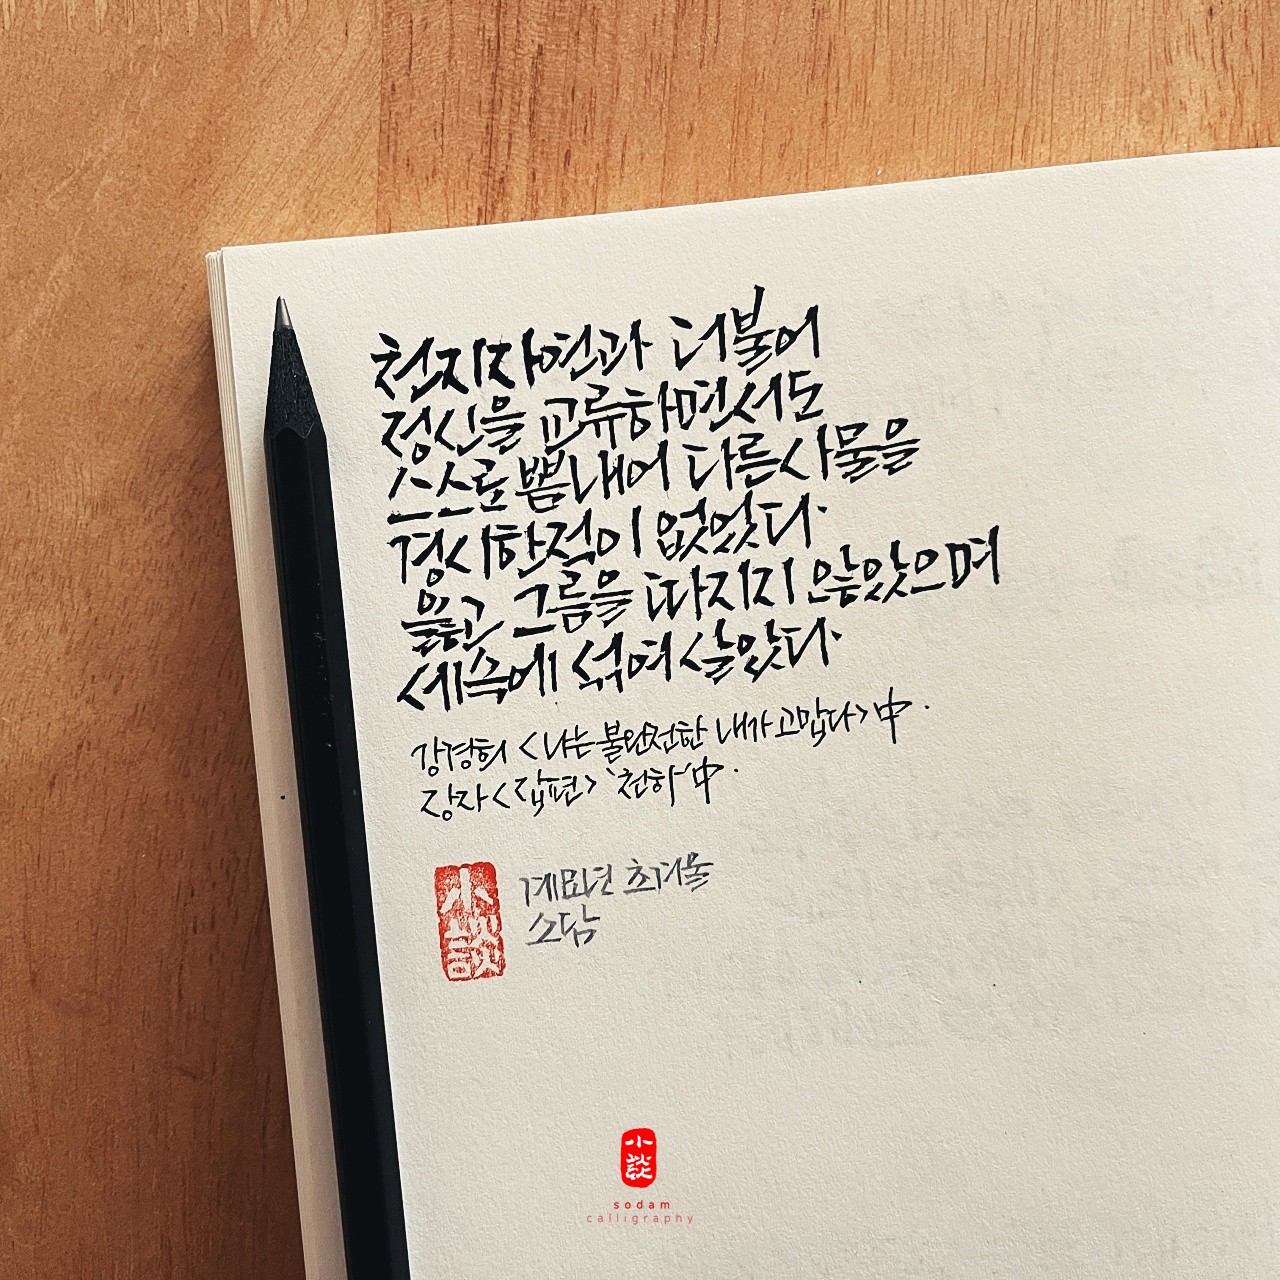 천지자연과 더불어
정신을 교류하면서도
스스로 뽐내어 다른 사물을
경시한 적이 없었다.
옳고 그름을 따지지 않았으며
세속에 섞여 살았다.
강경희 <나는 불완전한 내가 고맙다> 中.
장자 <잡편> '천하' 中.
계묘년 초겨울
소담
小談
小談
sodam
calligraphy